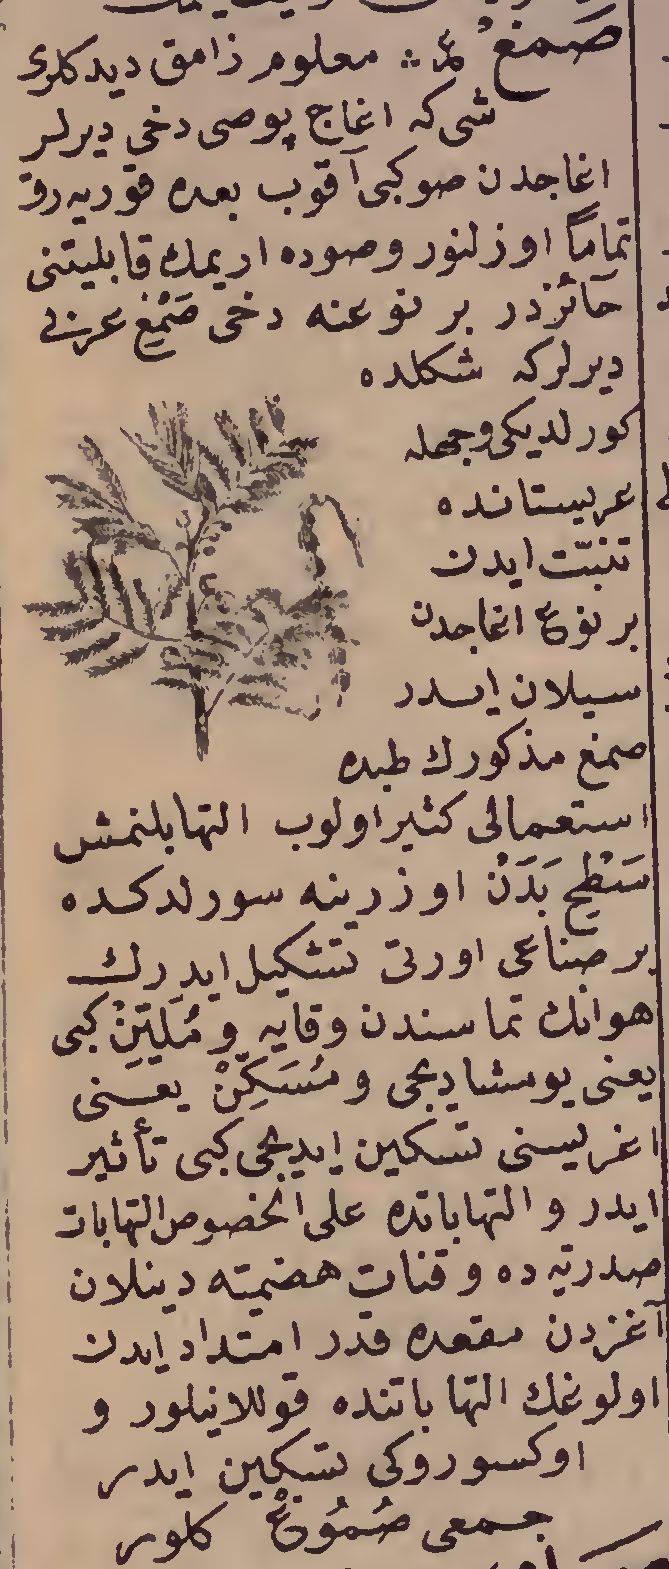 صَمغٌ ع؞ معلوم زامق ديدكلرى
شى كه اغاج پوصى دخى ديرلر
اغاجدن صو كبى آقوب بعده قوريه رق
تماماً اوزلنور وصوده اريمك قابليتنى
حائزدر بر نوعنه دخى صَمْغِ عربى
ديرلر كه شكلده
كورلديكى وجهله
عربستانده
تنبّت ايدن
بر نوع اغاجدن
سيلان ايدر
صمغ مذكورك طبده
استعمالى كثير اولوب التهابلنمش
سَطْحِ بَدَنْ اوزرينه سورلدكده
بر صناعى اورتى تشكيل ايدرك
هوانك تماسندن وقايه و مُلَيّنْ كبى
يعنى يومشاديجى و مُسَكِّنْ يعنى
اغريسنى تسكين ايديجى كبى تأثير
ايدر و التهاباتده على الخصوص التهابات
صدريه ده و قنات هضميته دينلان
آغزدن مقعده قدر امتداد ايدن
اولوغك التهاباتنده قوللانيلور و
اوكسوروكى تسكين ايدر
جمعى صُمُوغْ كلور